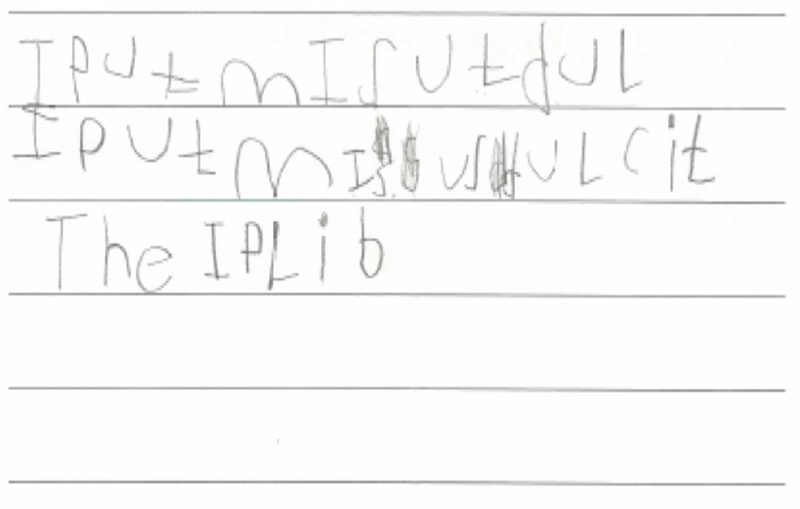 I PUt mISUtdUL
I PUt mIS USdUL Cit
The IPLib